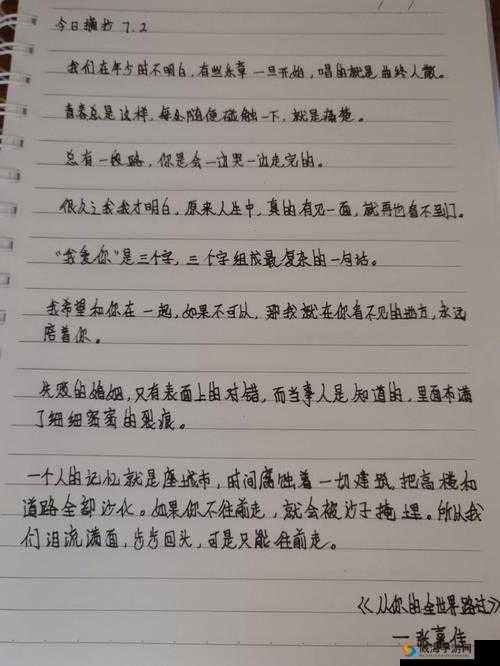 今日摘抄 7.2
我们在年少时不明白,有些乐章一旦开始,唱的就是曲终人散。
青春总是这样,每处随便碰触一下,就是痛楚。
总有一段路,你是会一边哭一边走完的。
很久之后我才明白,原来人生中,真的有见一面,就再也看不到了。
“我爱你”是三个字,三个字组成最复杂的一句话。
我希望和你在一起,如果不可以,那我就在你看不见的地方,永远
陪着你。
失败的婚姻,只有表面上的对错,而当事人是知道的,里面布满
了细细密密的裂痕。
一个人的记忆就是座城市,时间腐蚀着一切建筑,把高楼和
道路全部沙化。如果你不往前走,就会被沙子掩埋。所以我
们泪流满面,步步回头,可是只能往前走。
《从你的全世界路过》
—张嘉佳